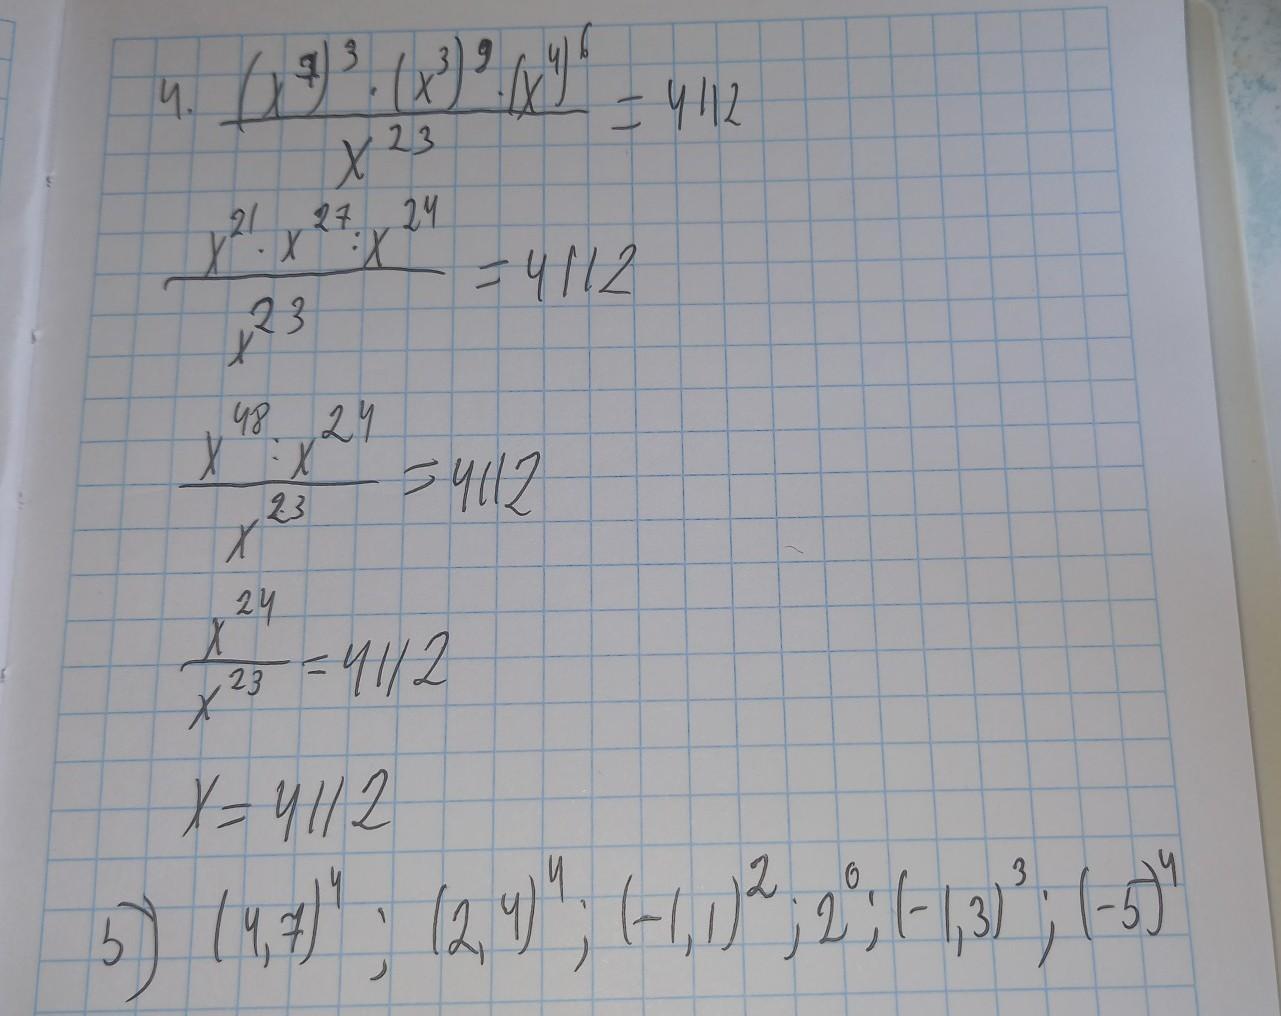 4. ((x^7)^3 · (x^3)^9 · (x^4)^6) / x^23 = 4112
(x^21 · x^27 : x^24) / x^23 = 4112
(x^48 : x^24) / x^23 = 4112
x^24 / x^23 = 4112
x = 4112
5) (4,7)^4 ; (2,4)^4 ; (-1,1)^2 ; 2^0 ; (-1,3)^3 ; (-5)^4